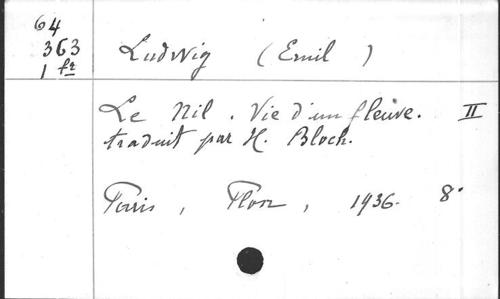 64
363
1 fr
Ludwig (Emil)
Le Nil. Vie d'un fleuve. II
traduit par H. Bloch.
Paris, Plon, 1936. 8°